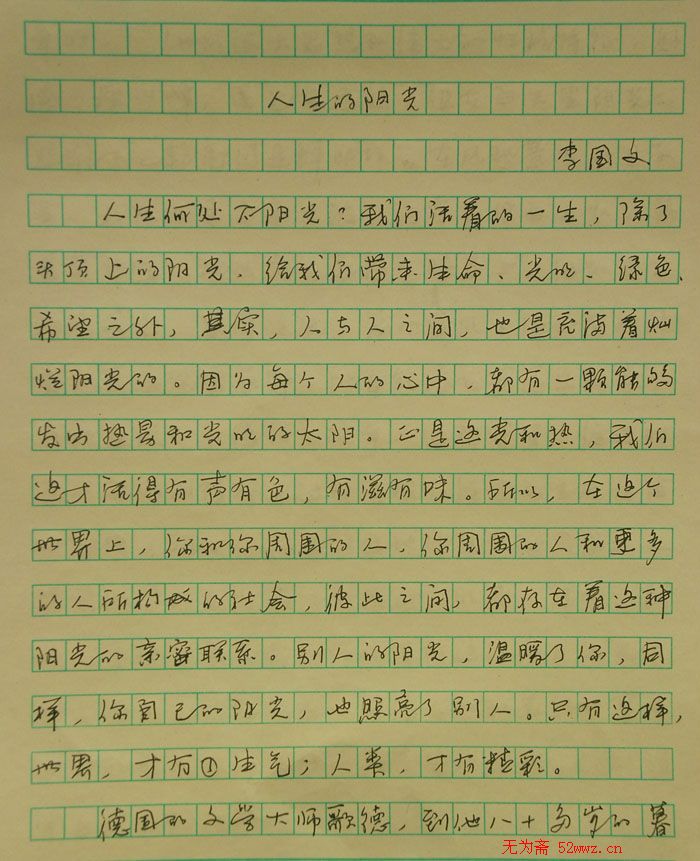 人生的阳光
李国文
人生何处不阳光？我们活着的一生，除了
头顶上的阳光，给我们带来生命、光明、绿色、
希望之外，其实，人与人之间，也是充满着灿
烂阳光的。因为每个人的心中，都有一颗能够
发出热量和光明的太阳。正是这光和热，我们
这才活得有声有色，有滋有味。所以，在这个
世界上，你和你周围的人，你周围的人和更多
的人所构成的社会，彼此之间，都存在着这种
阳光的亲密联系。别人的阳光，温暖了你，同
样，你自己的阳光，也照亮了别人。只有这样，
世界，才有①生气；人类，才有精彩。
德国的文学大师歌德，到他八十多岁的暮
无为斋 52wwz.cn